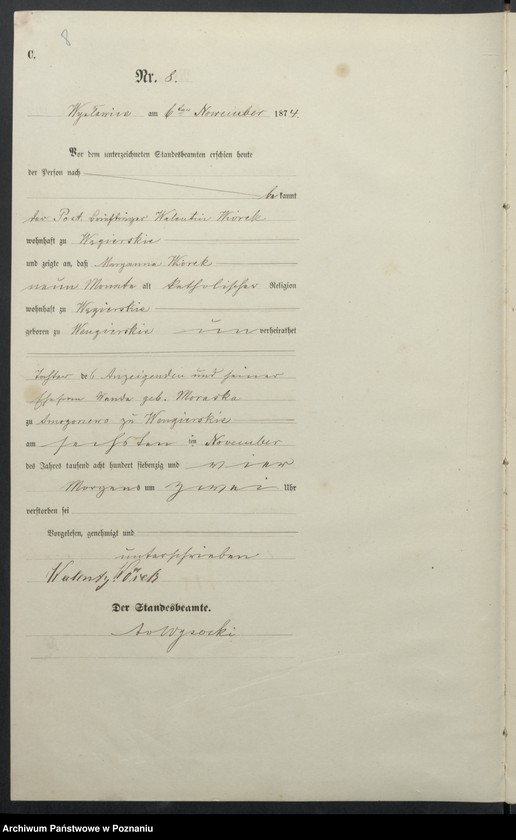 8
C.
Nr. 8.
am 6ten November 1874
Vor dem unterzeichneten Standesbeamten erschien heute
der Person nach
bekannt
der Post Briefträger Walentin Wiórek
wohnhaft zu Wegierskie
und zeigte an, daß Maryanna Wiórek
neun Monate alt katholischer Religion
wohnhaft zu Wegierskie
geboren zu Wengierskie unverheirathet
Tochter des Anzeigenden und seiner
Ehefrau Wanda geb. Moraska
zu Wengierskie
am sechsten ten November
des Jahres tausend acht hundert siebenzig und vier
Morgens um zwei Uhr
verstorben sei
Vorgelesen, genehmigt und
unterschrieben
Walenty Wiórek
Der Standesbeamte.
Wysocki
Archiwum Państwowe w Poznaniu